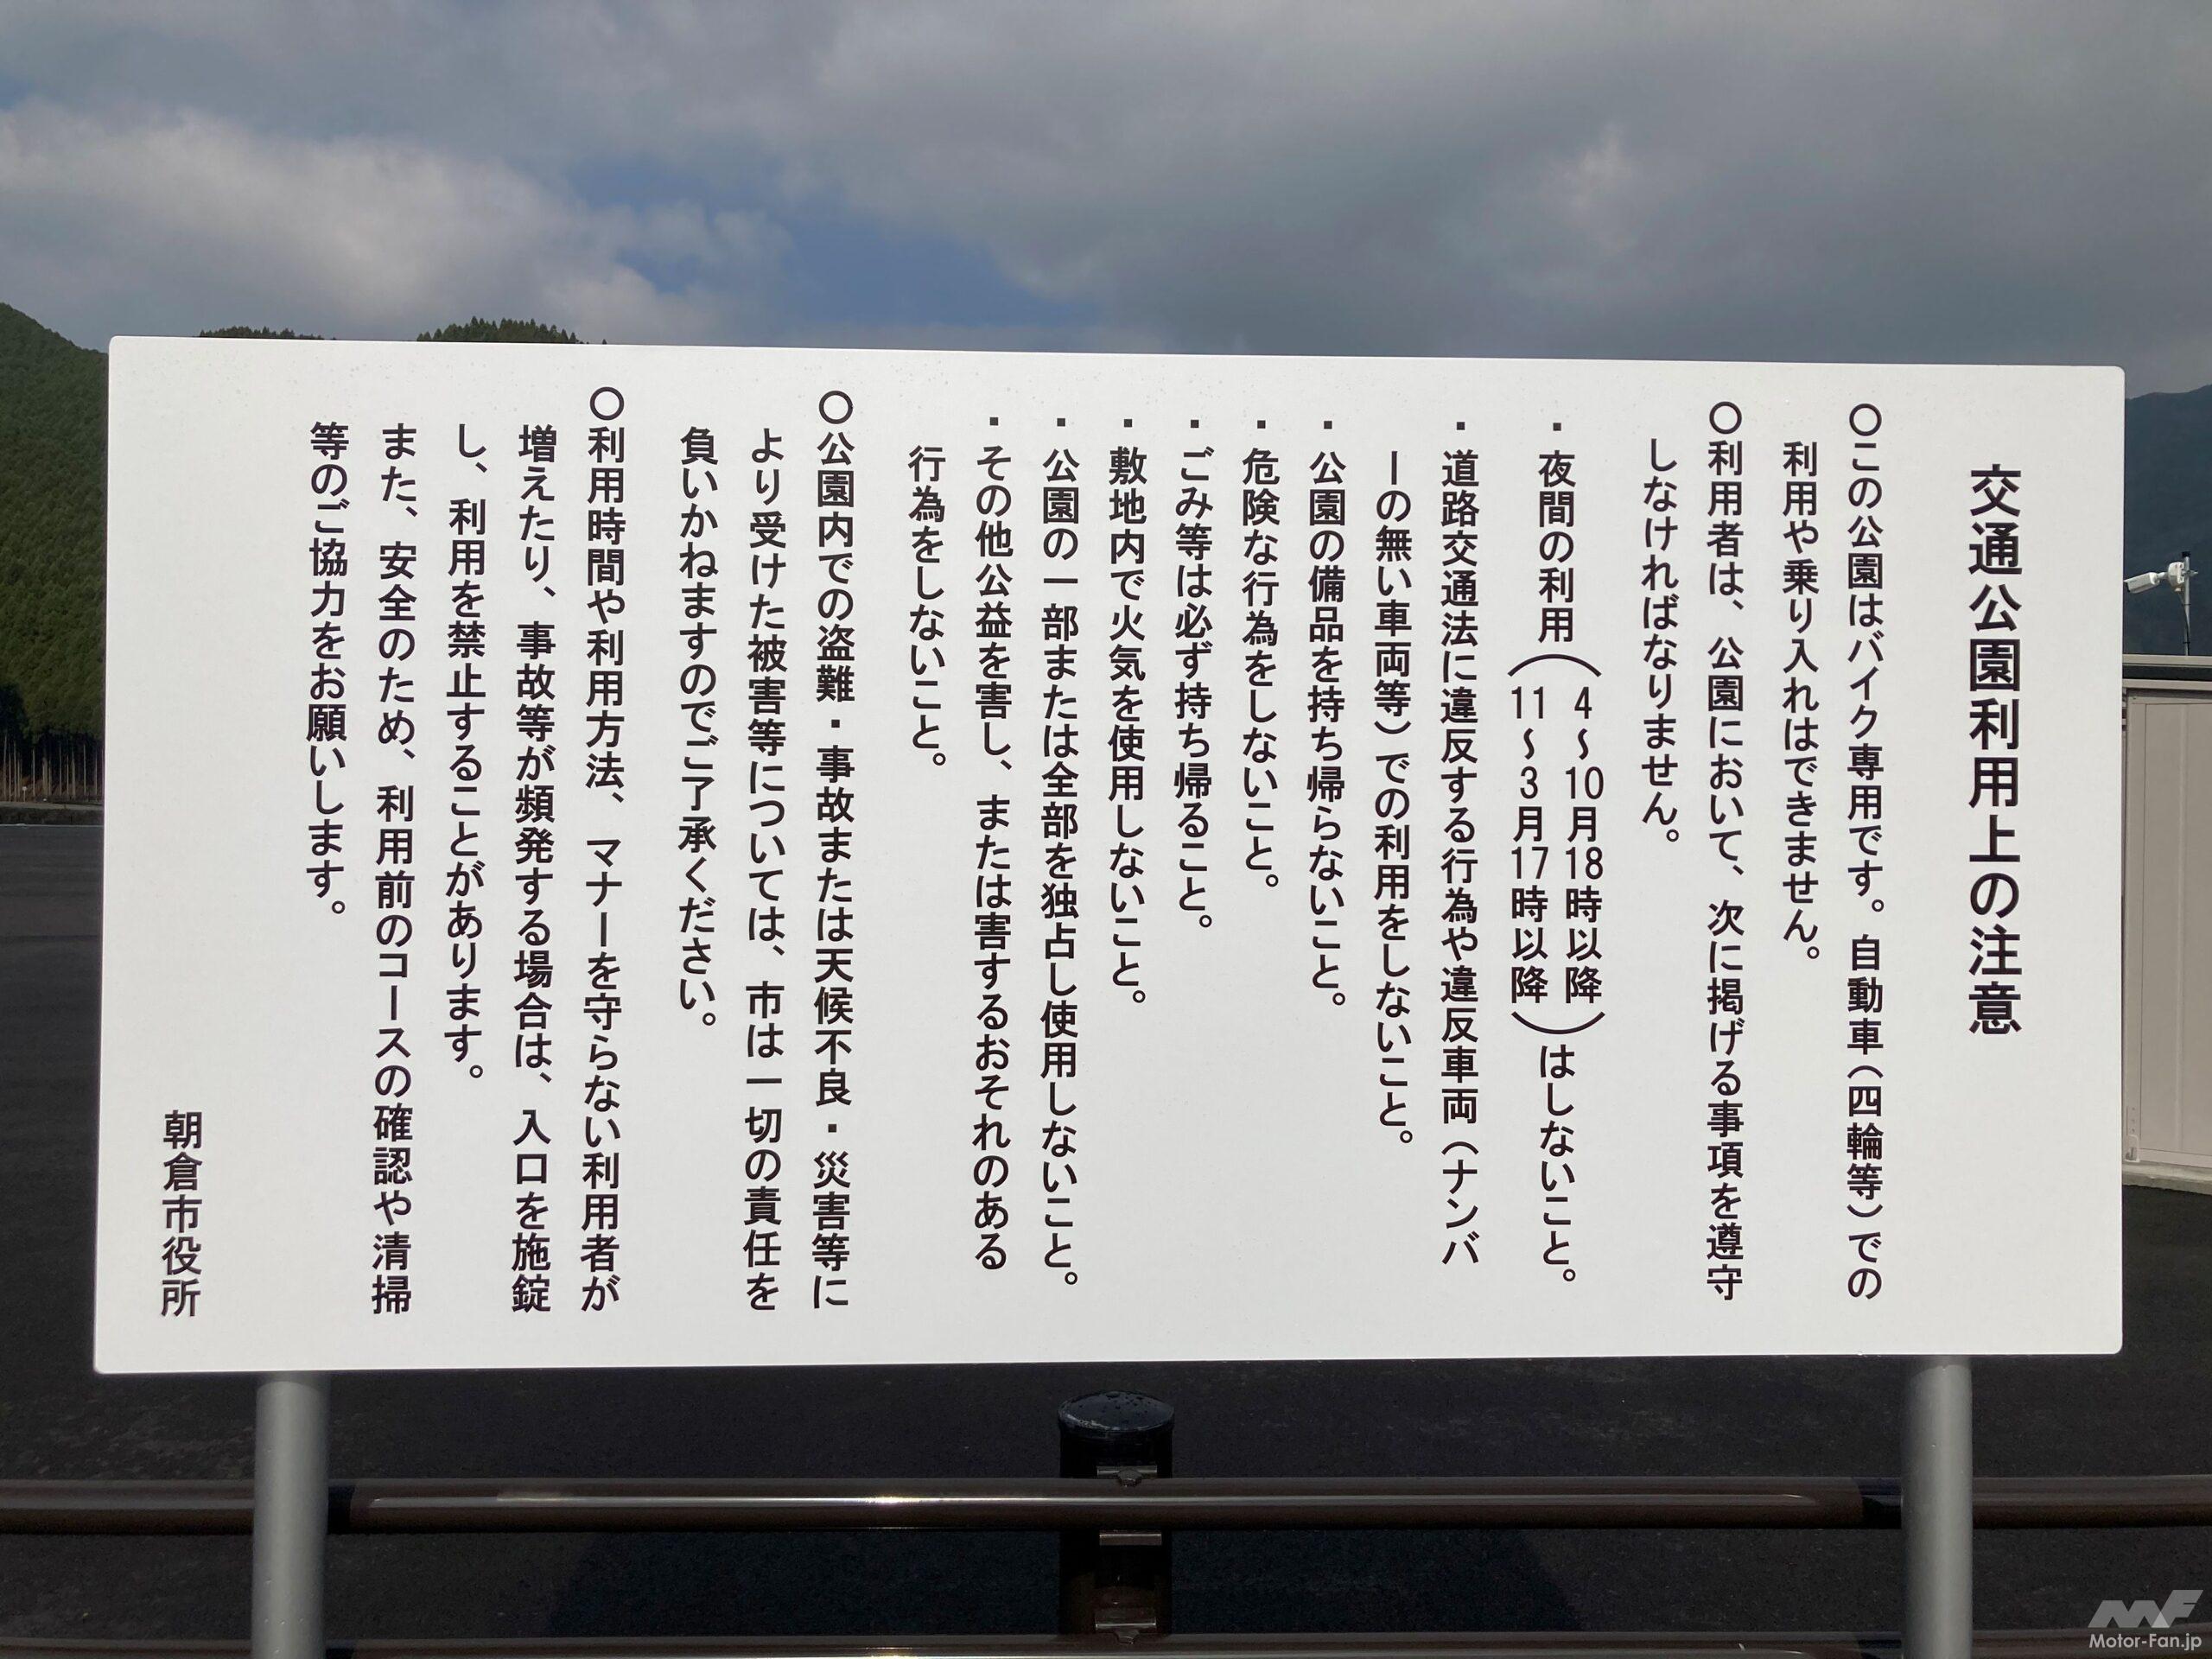 交通公園利用上の注意
○この公園はバイク専用です。自動車(四輪等)での
利用や乗り入れはできません。
○利用者は、公園において、次に掲げる事項を遵守
しなければなりません。
・夜間の利用(4～10月18時以降
11～3月17時以降)はしないこと。
・道路交通法に違反する行為や違反車両(ナンバ
ーの無い車両等)での利用をしないこと。
・公園の備品を持ち帰らないこと。
・危険な行為をしないこと。
・ごみ等は必ず持ち帰ること。
・敷地内で火気を使用しないこと。
・公園の一部または全部を独占し使用しないこと。
・その他公益を害し、または害するおそれのある
行為をしないこと。
○公園内での盗難・事故または天候不良・災害等に
より受けた被害等については、市は一切の責任を
負いかねますのでご了承ください。
○利用時間や利用方法、マナーを守らない利用者が
増えたり、事故等が頻発する場合は、入口を施錠
し、利用を禁止することがあります。
また、安全のため、利用前のコースの確認や清掃
等のご協力をお願いします。
朝倉市役所
Motor-Fan.jp